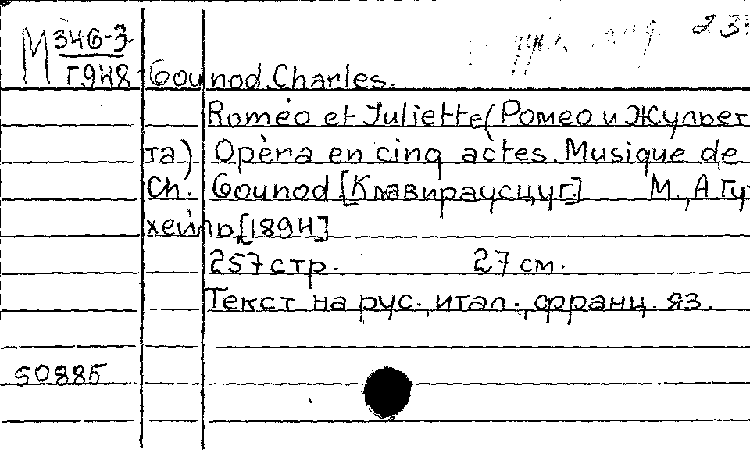 М 346-3
Г948 Gounod. Charles.
Roméo et Juliette (Ромео и Жульет
та) Opèra en cinq actes. Musique de
Ch. Gounod [Клавираусцуг.] М., А. Гу
хейль, [1894]
257 стр. 27 см.
Текст на рус., итал., франц. яз.
50885